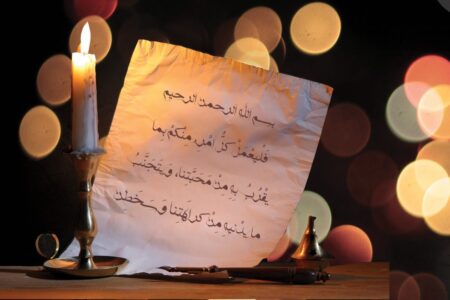 بسم الله الرحمن الرحيم
فَلْيَعْمَلْ كلُّ امْرِءٍ مِنْكُمْ بِما
يَقْرُبُ بِهِ مِنْ مَحَبَّتِنا، وَيَتَجَنَّبُ
ما يُدْنيهِ مِنْ كَراهَتِنا وَسَخَطِنا